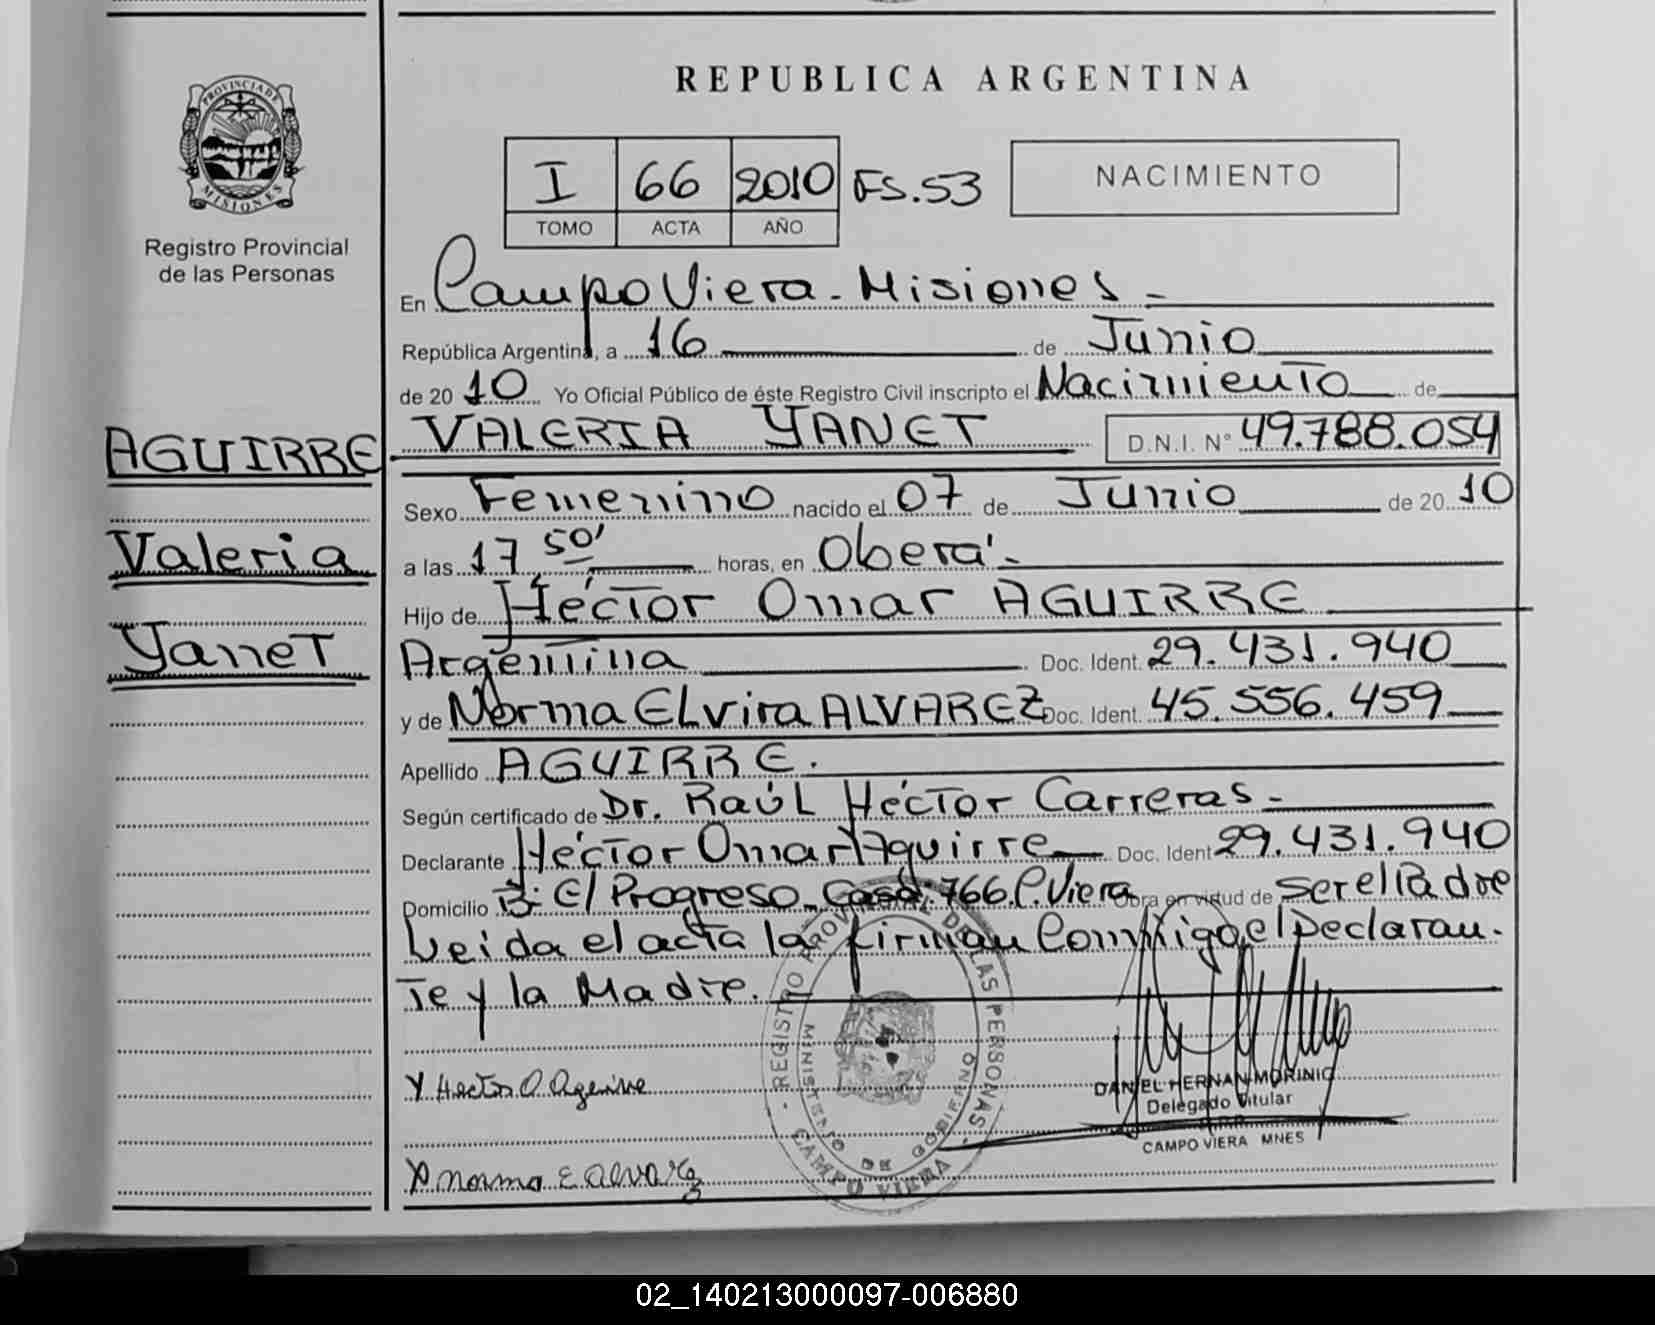 REPUBLICA ARGENTINA
PROVINCIA DE MISIONES
Registro Provincial
de las Personas
I 66 2010 FS.53
TOMO ACTA AÑO
NACIMIENTO
En Campo Viera - Misiones -
República Argentina, a 16 de Junio
de 2010 Yo Oficial Público de éste Registro Civil inscripto el Nacimiento de
AGUIRRE
Valeria
Yanet
VALERIA YANET D.N.I. N° 49.788.054
Sexo Femenino nacido el 07 de Junio de 2010
a las 17 50' horas, en Oberá -
Hijo de Héctor Omar AGUIRRE
Argentina Doc. Ident. 29.431.940
y de Norma Elvira ALVAREZ Doc. Ident. 45.556.459
Apellido AGUIRRE.
Según certificado de Dr. Raúl Héctor Carreras -
Declarante Héctor Omar Aguirre Doc. Ident 29.431.940
Domicilio B: El Progreso - Casa: 766. C. Viera Obra en virtud de ser el Padre
Leida el acta la firman Conmigo, el Declaran-
te y la Madre.
X Hector O Aguirre
X Norma E Alvarez
REGISTRO PROVINCIAL DE LAS PERSONAS
MINISTERIO DE GOBIERNO
CAMPO VIERA
DANIEL HERNAN MORINIG
Delegado Titular
CAMPO VIERA MNES
02_140213000097-006880